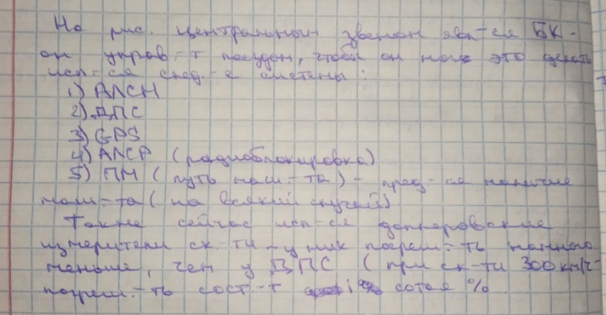 На рис. центральным звеном явл-ся БК -
он управ-т поездом, чтобы он мог это делать
исп-ся след-е системы:
1) АЛСН
2) ДПС
3) GPS
4) АЛСР (радиоблокировка)
5) ПМ (путь маш-та) - пред-ся наличие
маш-та (на всякий случай)
Также сейчас исп-ся доплеровские
измерители ск-ти - у них погреш-ть намного
меньше, чем у ДПС (при ск-ти 300 км/ч -
погреш-ть сост-т сотая %